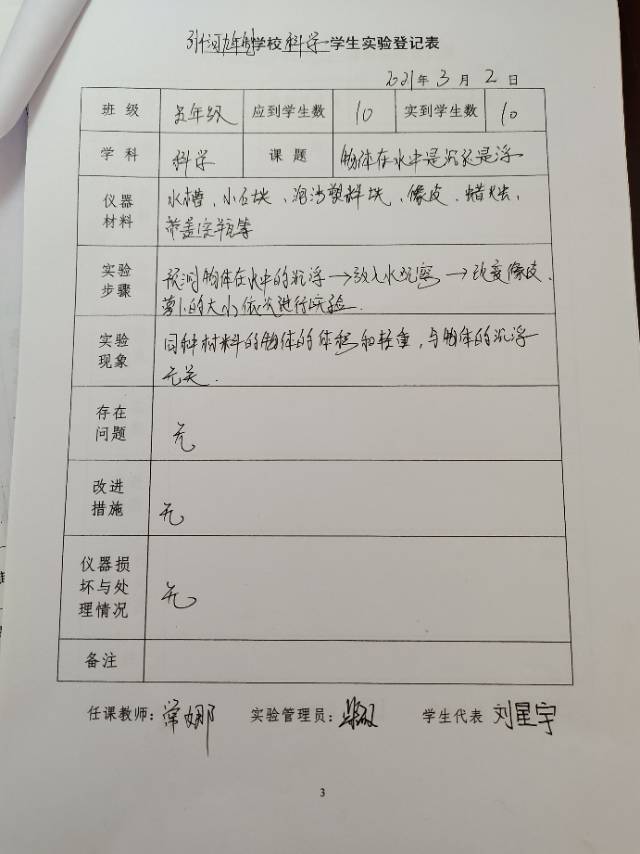 引河九年制学校 科学 学生实验登记表
2021年 3 月 2 日
班 级 五年级 应到学生数 10 实到学生数 10
学 科 科学 课 题 物体在水中是沉还是浮
仪器 水槽、小石块、泡沫塑料块、橡皮、蜡烛、
材料 带盖空瓶等
实验 预测物体在水中的沉浮→放入水观察→改变橡皮、
步骤 萝卜的大小依次进行实验.
实验 同种材料的物体的体积和轻重,与物体的沉浮
现象 无关.
存在
问题 无
改进
措施 无
仪器损
坏与处 无
理情况
备注
任课教师:常娜 实验管理员: 学生代表 刘星宇
3